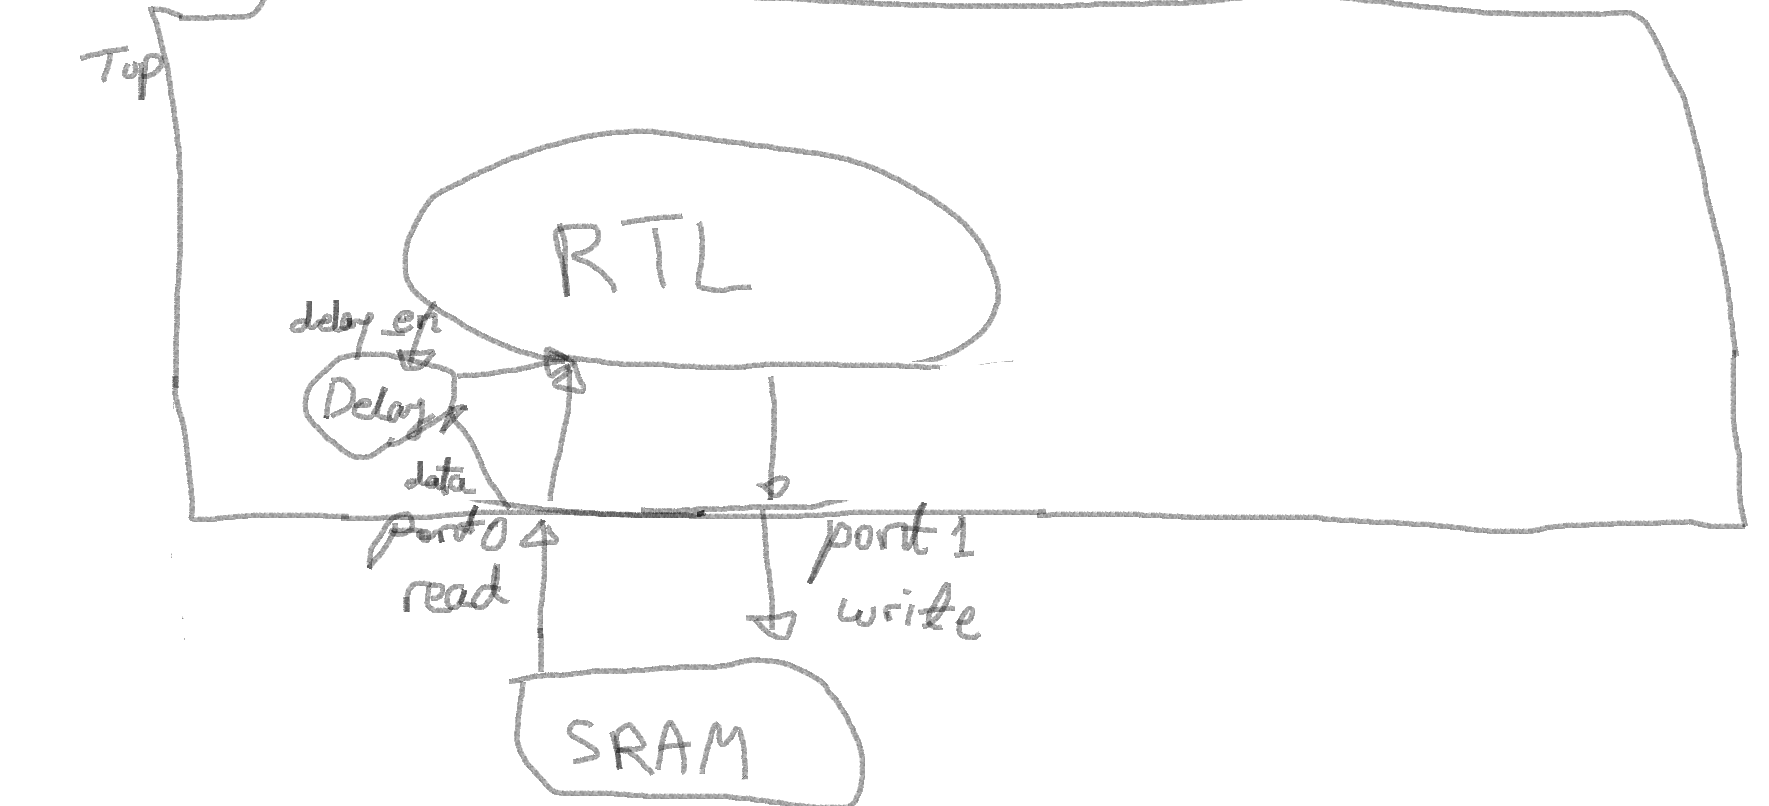 Top
RTL
delay_en
Delay
data
port 0
read
port 1
write
SRAM